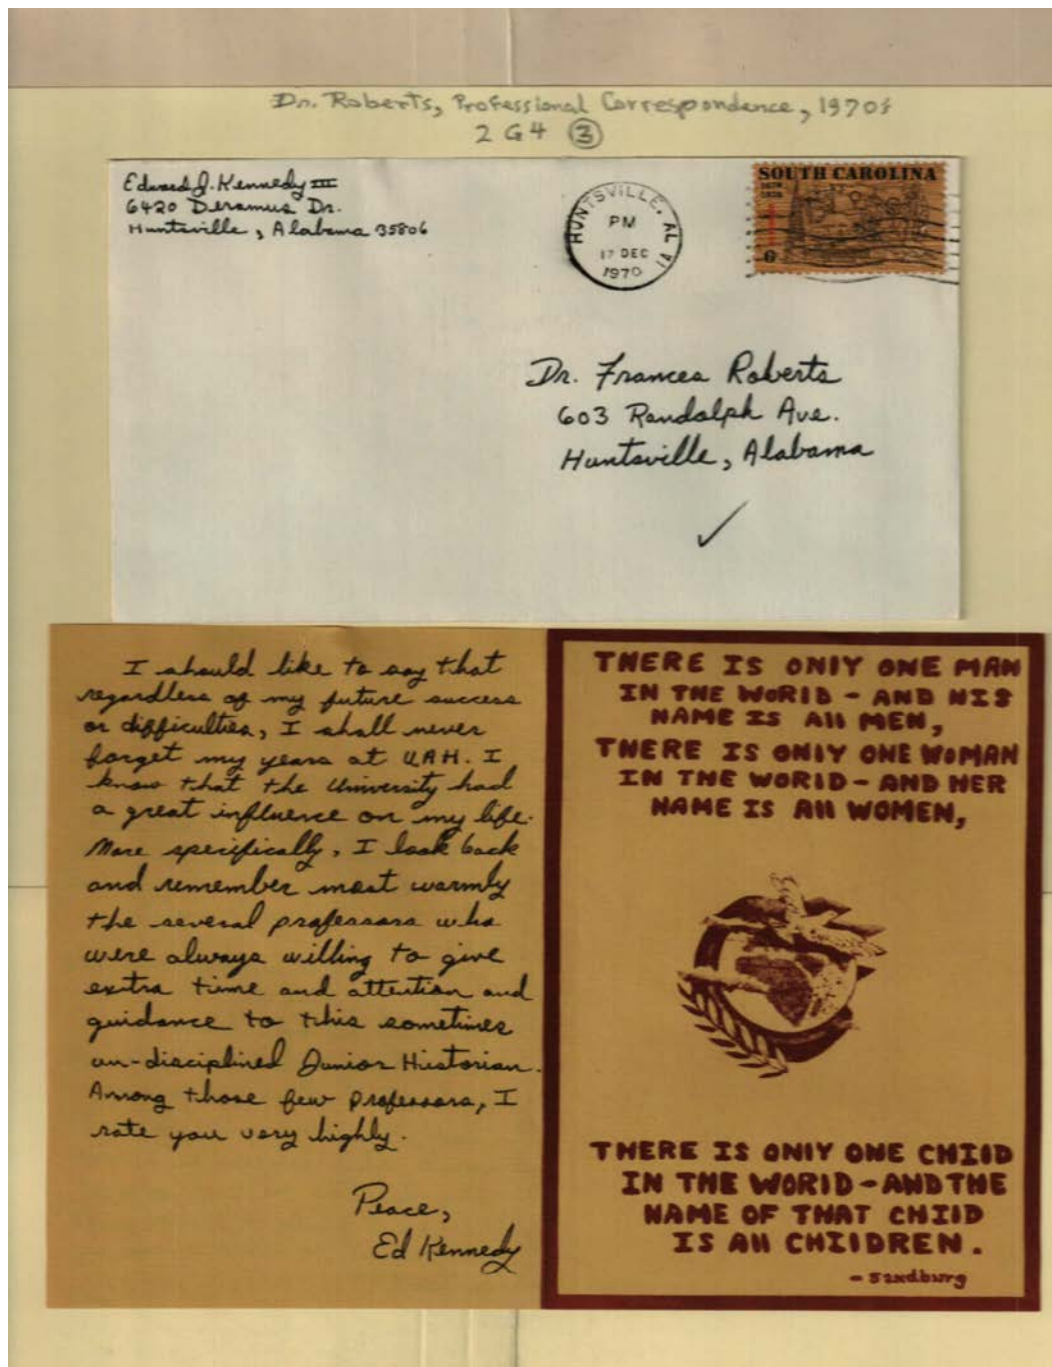 Dr. Roberts, Professional Correspondence, 1970s
2 G 4 3
Edward J. Kennedy III
6420 Deramus Dr.
Huntsville, Alabama 35806
HUNTSVILLE, AL
PM
17 DEC
1970
SOUTH CAROLINA
1670
1970
6
Dr. Frances Roberts
603 Randolph Ave.
Huntsville, Alabama
I should like to say that
regardless of my future success
or difficulties, I shall never
forget my years at UAH. I
know that the University had
a great influence on my life.
More specifically, I look back
and remember most warmly
the several professors who
were always willing to give
extra time and attention and
guidance to this sometimes
un-disciplined Junior Historian.
Among those few professors, I
rate you very highly.
Peace,
Ed Kennedy
THERE IS ONLY ONE MAN
IN THE WORLD - AND HIS
NAME IS ALL MEN,
THERE IS ONLY ONE WOMAN
IN THE WORLD - AND HER
NAME IS ALL WOMEN,
THERE IS ONLY ONE CHILD
IN THE WORLD - AND THE
NAME OF THAT CHILD
IS ALL CHILDREN.
- Sandburg